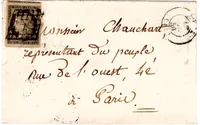 Monsieur Chauchart
représentant du peuple
Rue de l'ouest 42
à Paris